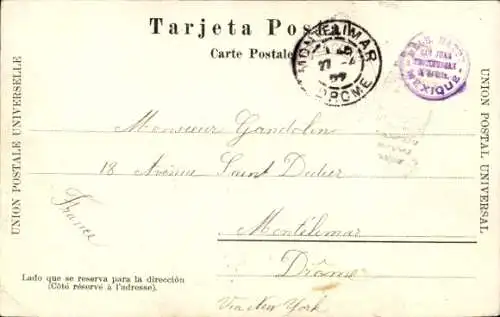 Tarjeta Postal
Carte Postale
MONTELIMAR
27
DROME
SAN JUAN
MEXIQUE
UNION POSTALE UNIVERSELLE
UNION POSTAL UNIVERSAL
Monsieur Gandolin
18 Avenue Saint Didier
Montélimar
Drôme
France
Via New York
Lado que se reserva para la dirección
(Côté réservé à l'adresse).